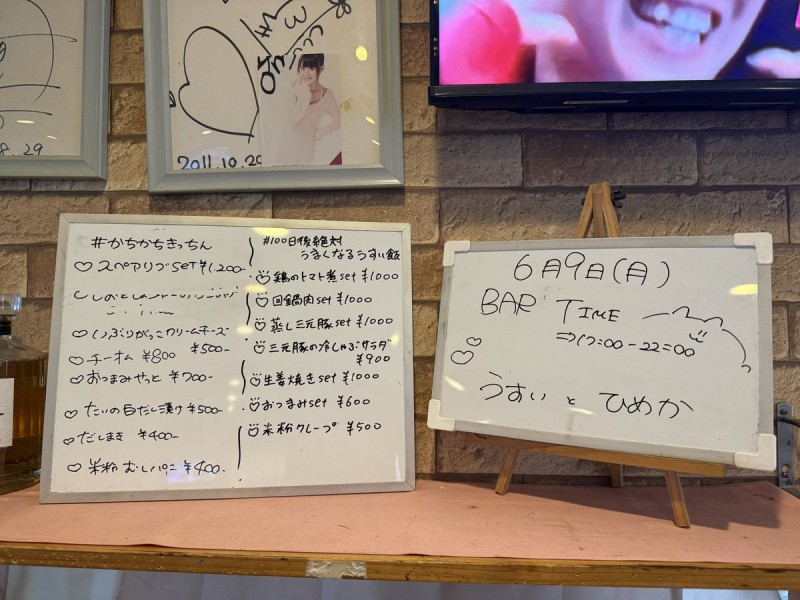 8.29
2011.10.29
#かちかちきっちん
スペアリブSET ¥1,200-
いぶりがっこクリームチーズ
¥500-
チーオム ¥800
おつまみせっと ¥700-
たいの白だし漬け ¥500-
だしまき ¥400-
米粉むしパン ¥400-
#100日後絶対
うまくなるうすい飯
鶏のトマト煮set ¥1000
回鍋肉set ¥1000
蒸し三元豚set ¥1000
三元豚の冷しゃぶサラダ
¥900
生姜焼きset ¥1000
おつまみset ¥600
米粉クレープ ¥500
6月9日(月)
BAR TIME
⇒17:00-22:00
うすい と ひめか